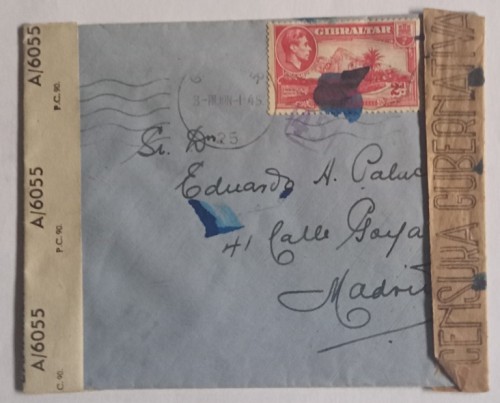 A/6055
P.C. 90.
A/6055
P.C. 90.
A/6055
C. 90.
GIBRALTAR
2D
25
Sr. Dn.
Eduardo A.
41 Calle Goya
Madrid
CENSURA GUBERNATIVA